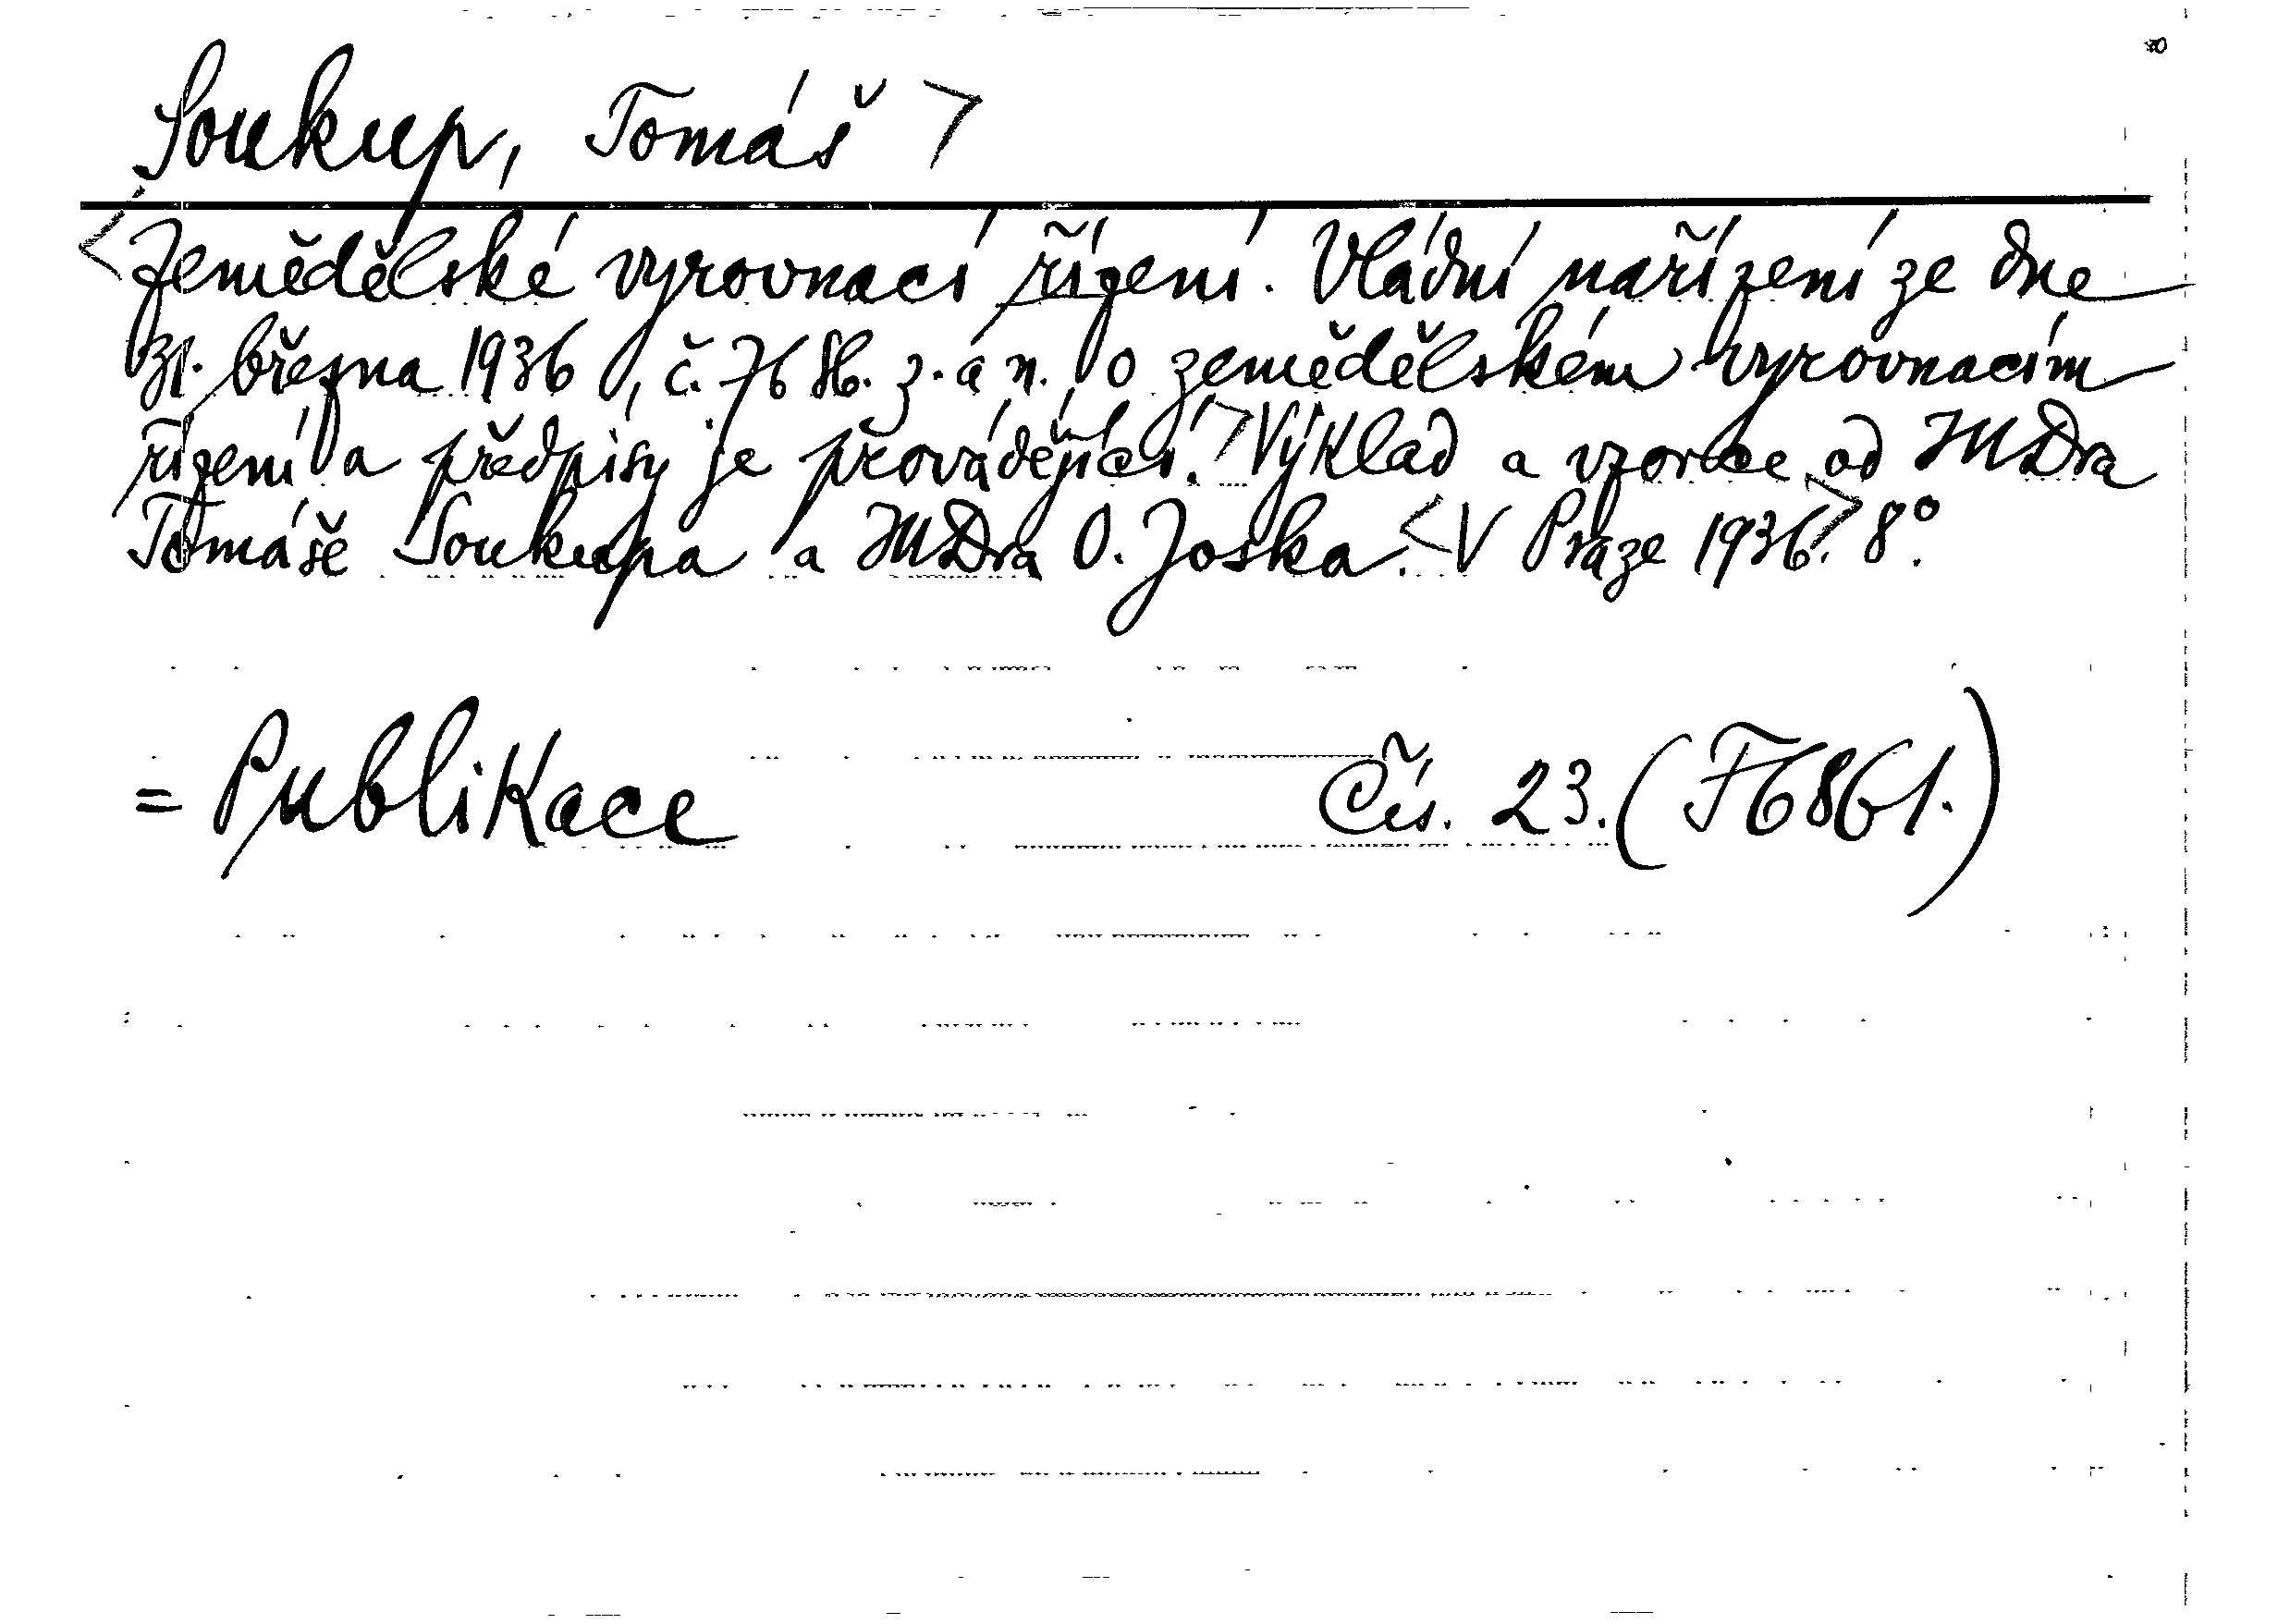 Soukup, Tomáš >
<Zemědělské vyrovnací řízení. Vládní nařízení ze dne
31. března 1936, č. 76 Sb. z. a n. o zemědělském vyrovnacím
řízení a předpisy je provádějící.> Výklad a vzorce od JUDra
Tomáše Soukupa a JUDra O. Joska. <V Praze 1936.> 8°.
= Publikace Čís. 23. (F6861.)